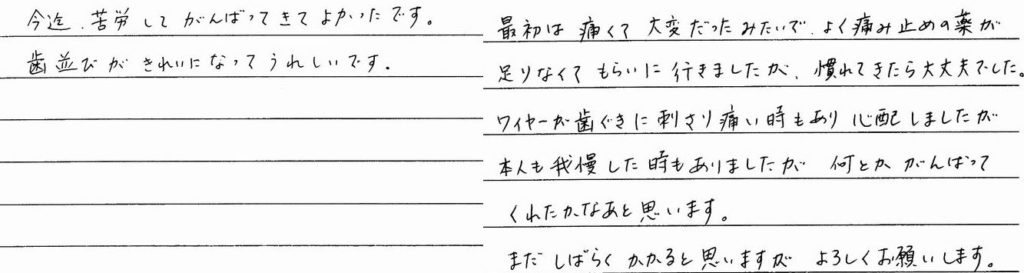 今迄、苦労してがんばってきてよかったです。
歯並びがきれいになってうれしいです。
最初は痛くて大変だったみたいで、よく痛み止めの薬が
足りなくてもらいに行きましたが、慣れてきたら大丈夫でした。
ワイヤーが歯ぐきに刺さり痛い時もあり心配しましたが
本人も我慢した時もありましたが 何とかがんばって
くれたかなあと思います。
まだしばらくかかると思いますが よろしくお願いします。